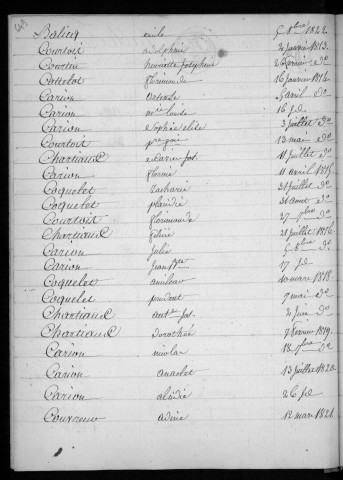 Balicq émile 5 8bre 1822.
Courtois adolphine 2 janvier 1813.
Courtin henriette Josephine 2 fevrier do
Cottelot florimonde 16 janvier 1814.
Carion 5 avril do
Carion Louise 16 jd
Carion Sophie elise 3 juillet do
Courtois 13 mai do
Chartiaux marie jos. 11 juillet do
Carion florine 11 avril 1815.
Coquelet zacharie 31 juillet do
Coquelet placide 31 aout do
Courtois florimonde 27 7bre do
Chartiaux félicité 21 juillet 1816.
Carion julie 5 8bre do
Carion Jean Bte 17 jd
Coquelet amilcar 10 mars 1818.
Coquelet prudent 7 mai do
Chartiaux ant. jos. 2 juin do
Chartiaux dorothée 7 fevrier 1819.
Carion nicolas 18 7bre do
Carion anaclet 13 juillet 1820.
Carion elodie 26 jd
Couvreur adine 12 mars 1821.